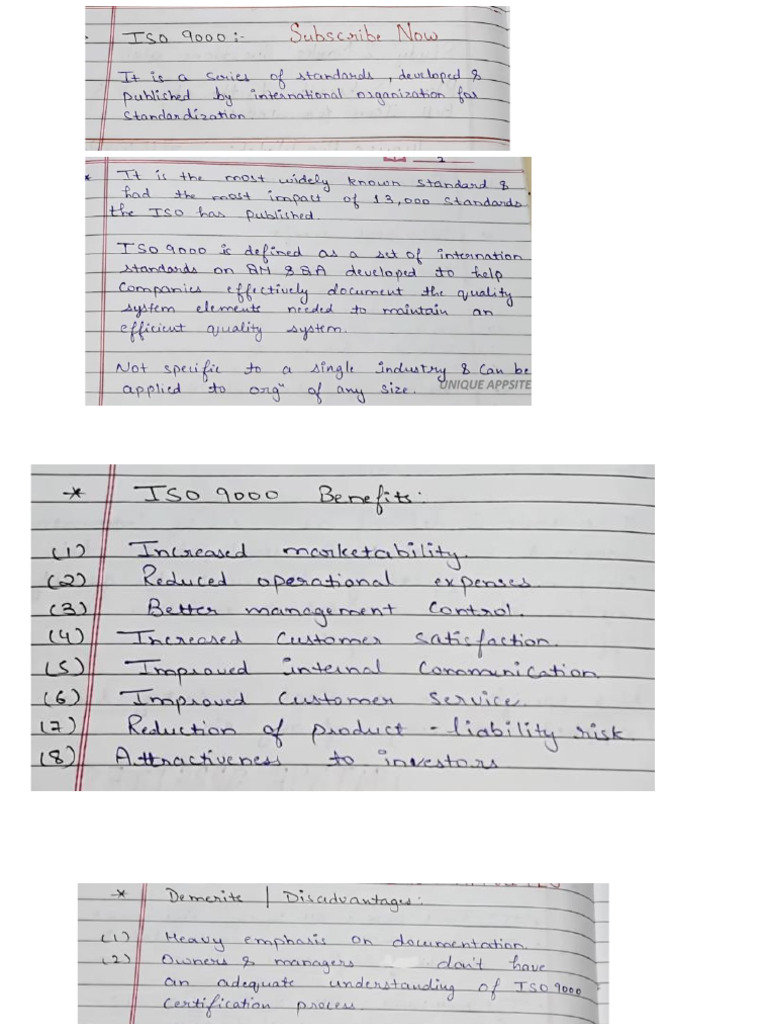 ISO 9000:- Subscribe Now
It is a series of standards, developed &
published by international organization for
Standardization.
2
* It is the most widely known standard &
had the most impact of 13,000 standards
the ISO has published.
ISO 9000 is defined as a set of internation
standards on QM & QA developed to help
Companies effectively document the quality
system elements needed to maintain an
efficient quality system.
Not specific to a single industry & can be
applied to orgⁿ of any size.
UNIQUE APPSITE
* ISO 9000 Benefits:
(1) Increased marketability.
(2) Reduced operational expenses.
(3) Better management Control.
(4) Increased Customer satisfaction.
(5) Improved internal Communication
(6) Improved Customer Service.
(7) Reduction of product - liability risk.
(8) Attractiveness to investors
* Demerits | Disadvantages:
(1) Heavy emphasis on documentation.
(2) Owners & managers don't have
an adequate understanding of ISO 9000
Certification process.